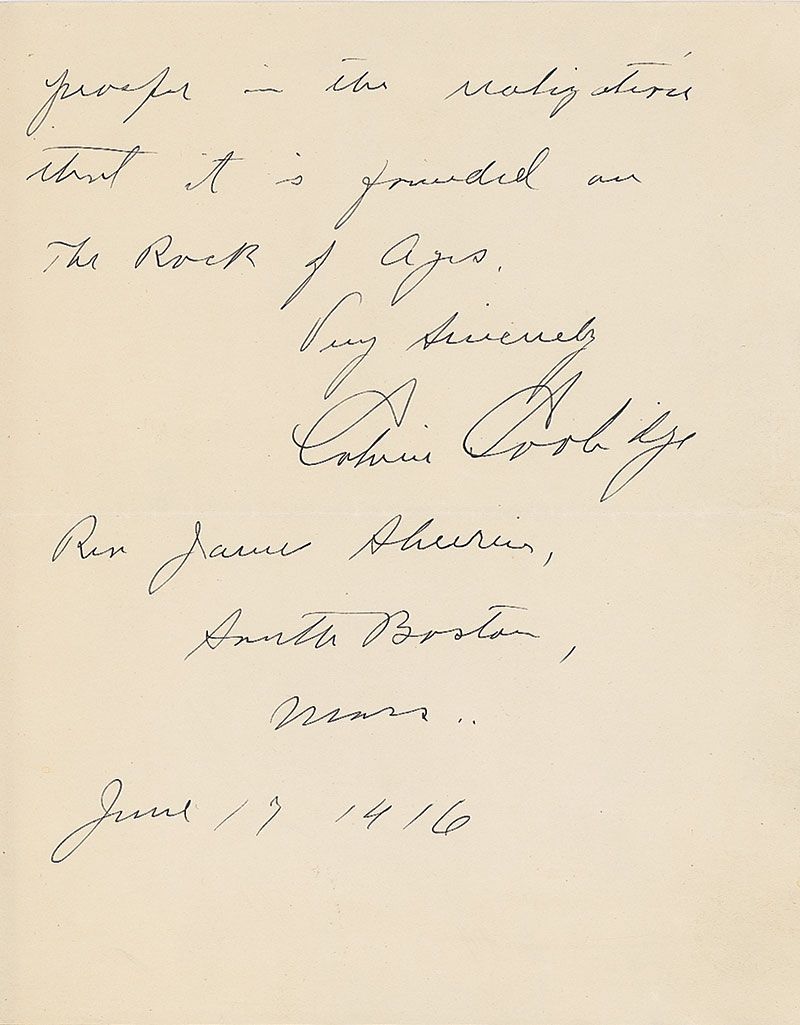 prosper in the realization
that it is founded on
The Rock of Ages.
Very Sincerely
Calvin Coolidge
Rev James Sheerin,
South Boston,
Mass..
June 17 1916